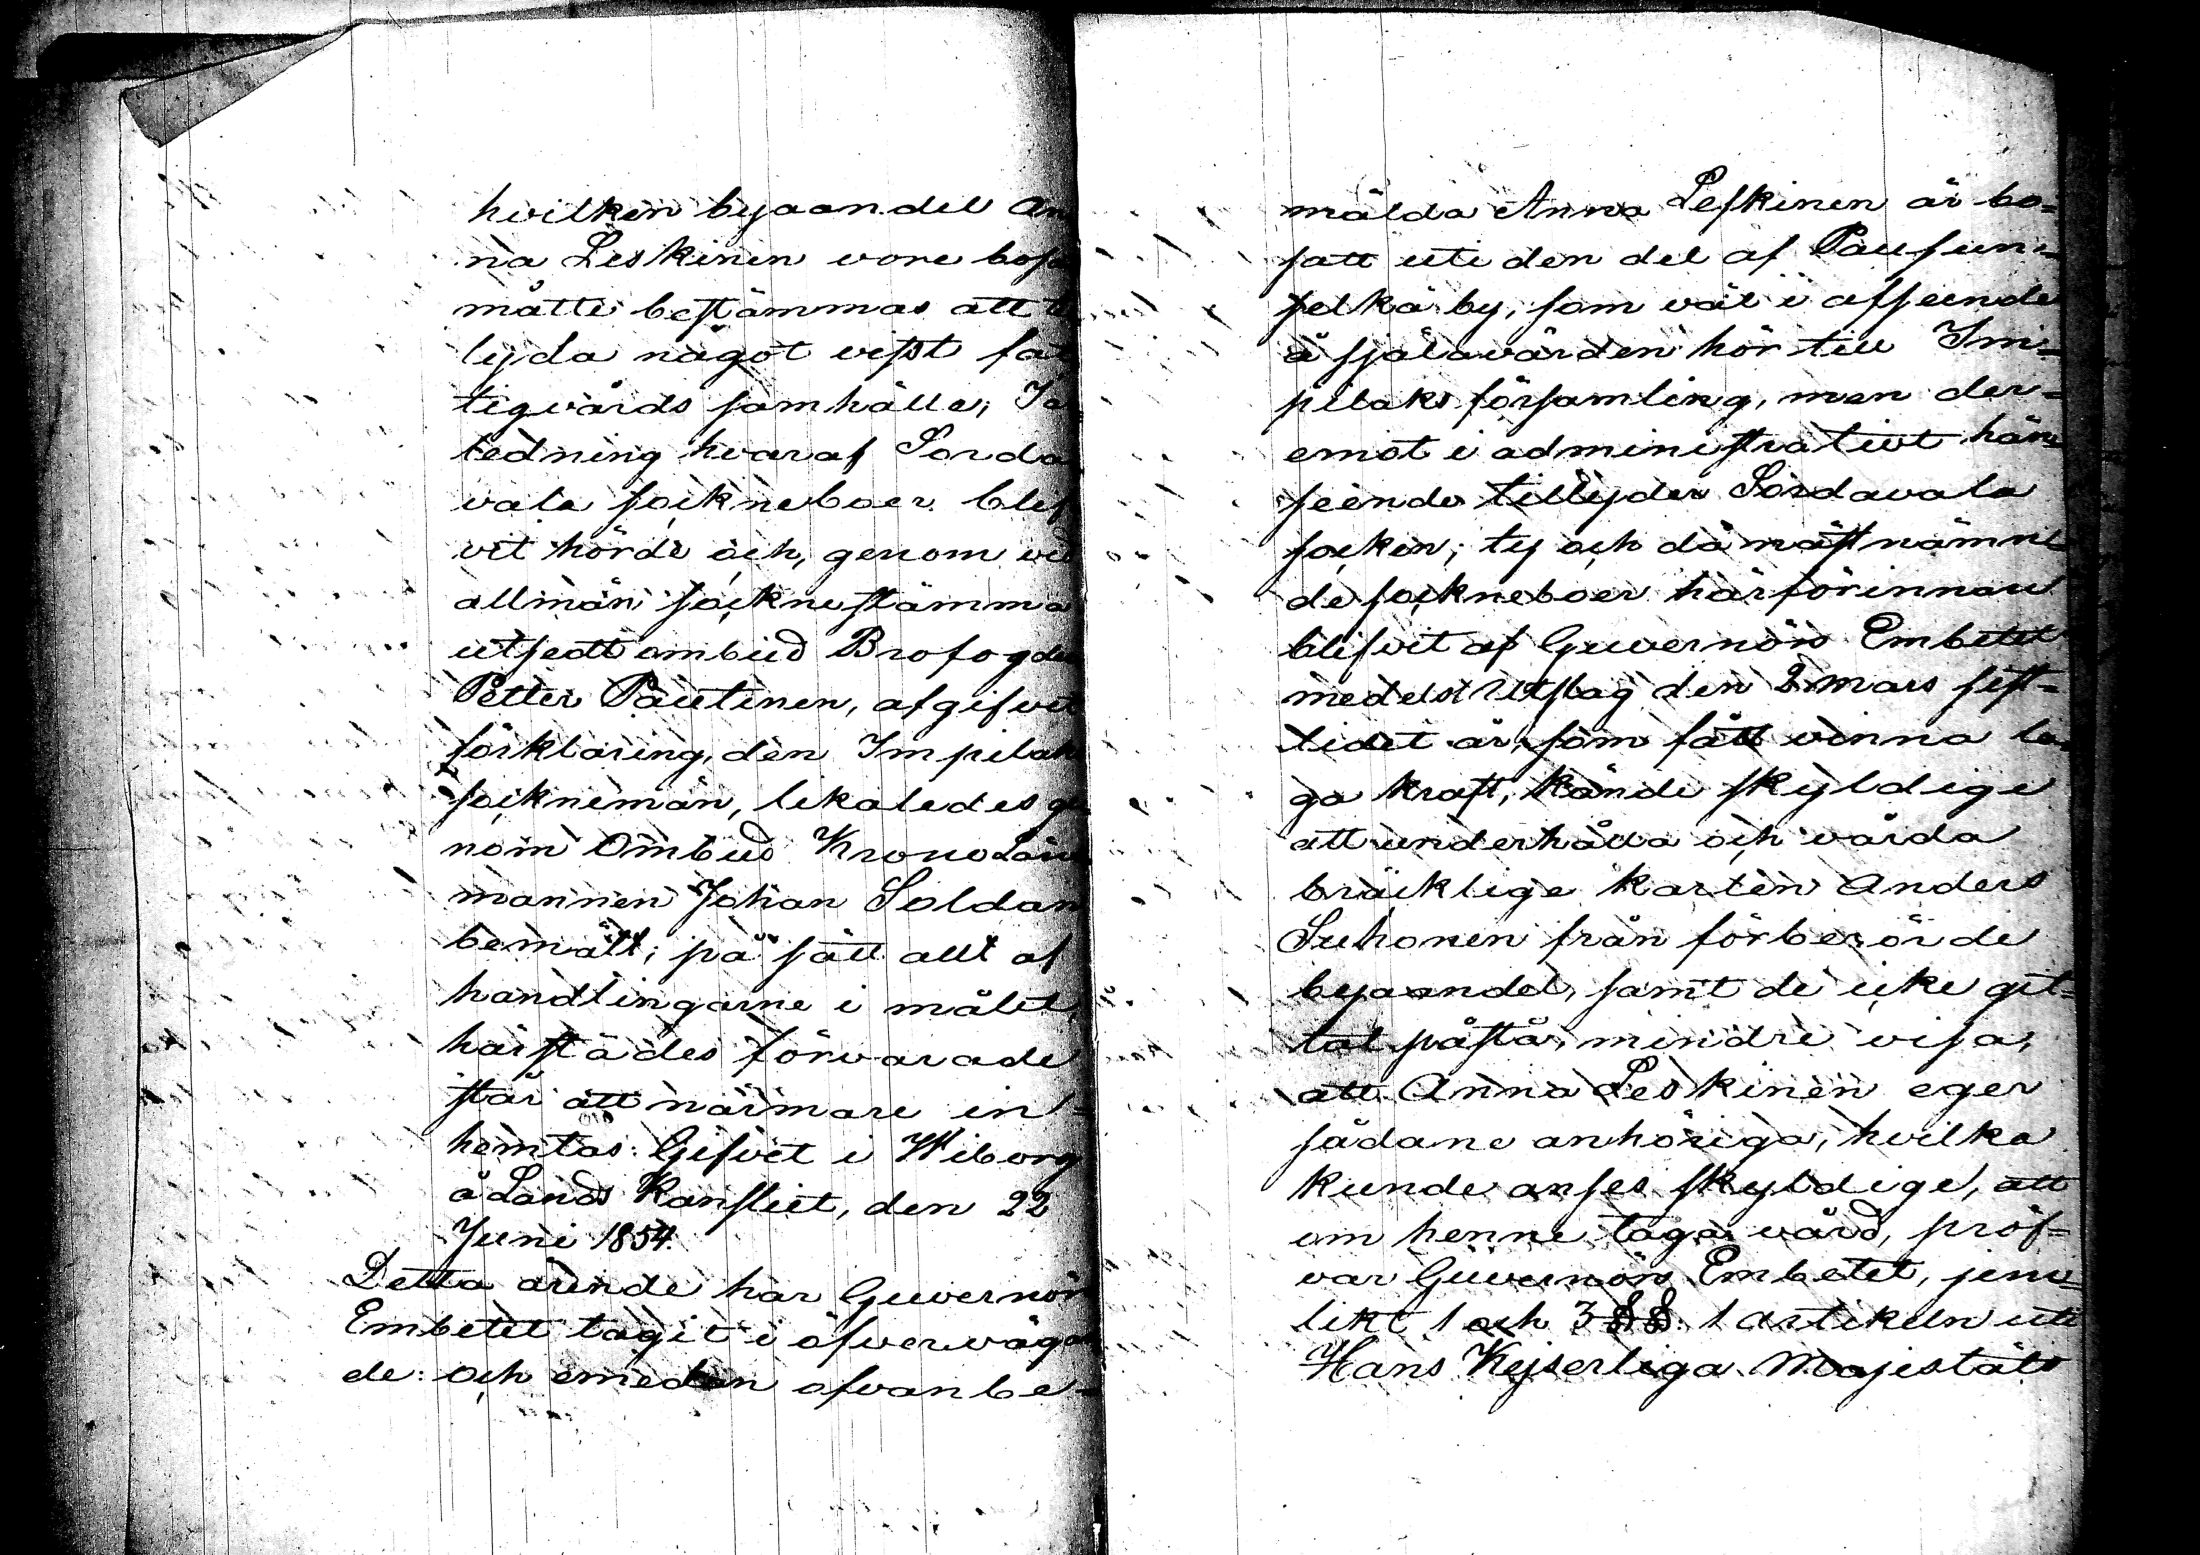 hvilken byaandel An
na Leskinen vore bosa
måtte bestämmas att
lyda något visst fat
tigvårds samhälle; I
ledning hvaraf Sorda
vala sockneboer blif
vit hörde och, genom vid
allmän socknestämma
utsedt ombud Brofogden
Petter Pautinen, afgifvit
förklaring, den Impilaks
socknemän, likaledes ge
nom Ombud Krono Läns
mannen Johan Soldan
bemält; på sätt allt af
handlingarne i målet,
härstädes förvarade
står att närmare in-
hemtas. Gifvet i Wiborg
å Lands Kansliet, den 22
Juni 1854.
Detta ärende har Guvernörs
Embetet tagit i öfvervägan
de: och emedan ofvanbe-
mälda Anna Leskinen är bo-
satt uti den del af Pausun-
selkä by, som väl i afseende
å själavården hör till Im-
pilaks församling, men der-
emot i administrativt hän-
seende tillyder Sordavala
socken; ty och då näst nämn-
de sockneboer härförinnan
blifvit af Guvernörs Embetet
medelst Utslag den 2 mars sist-
lidet år, som fått vinna la-
ga kraft, kände skyldige
att underhålla och vårda
bräcklige karlen Anders
Suhonen från förberörde
byaandel, samt de icke git-
tat påstå, mindre visa,
att Anna Leskinen eger
sådane anhöriga, hvilka
kunde anses skyldige, att
om henne taga vård, pröf-
var Guvernörs Embetet, jem-
likt 1 och 3 §§. 1 Artikeln uti
Hans Kejserliga Majestäts